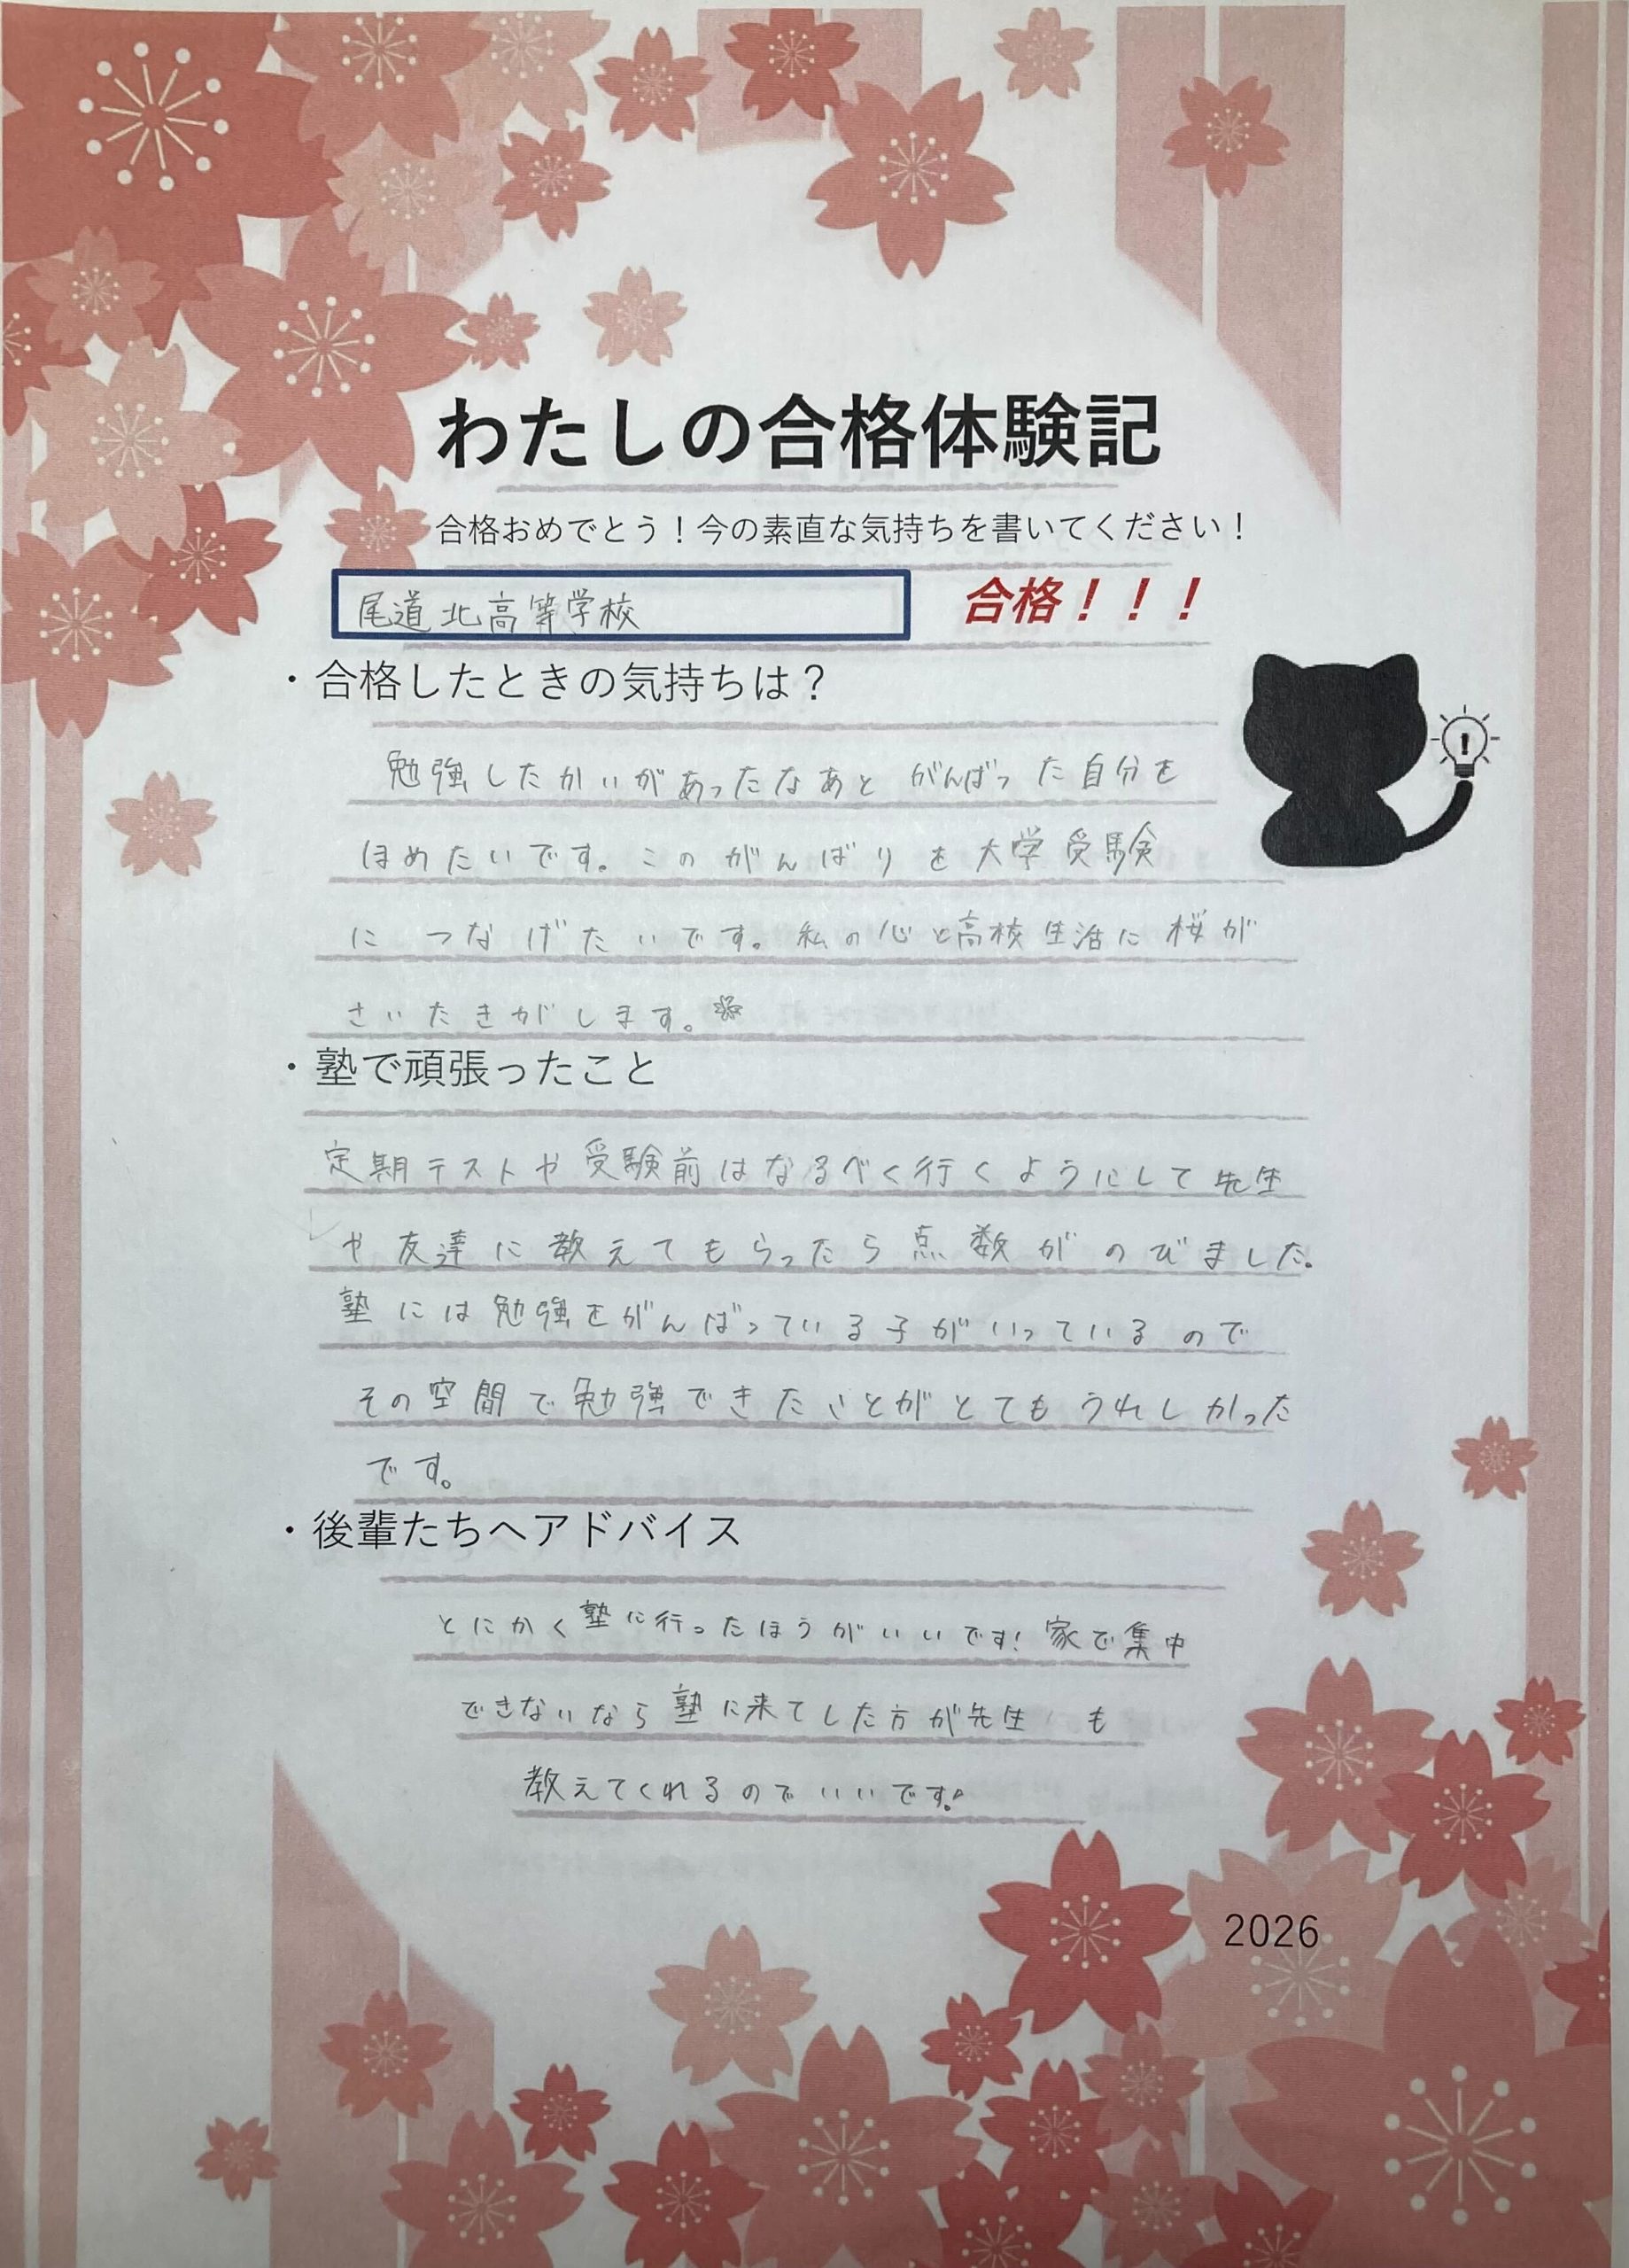 わたしの合格体験記
合格おめでとう！今の素直な気持ちを書いてください！
尾道北高等学校 合格！！！
・合格したときの気持ちは？
勉強したかいがあったなあと がんばった自分を
ほめたいです。このがんばりを大学受験
につなげたいです。私の心と高校生活に桜が
さいたきがします。
・塾で頑張ったこと
定期テストや受験前はなるべく行くようにして先生
や友達に教えてもらったら点数がのびました。
塾には勉強をがんばっている子がいっているので
その空間で勉強できたことがとてもうれしかった
です。
・後輩たちへアドバイス
とにかく塾に行ったほうがいいです! 家で集中
できないなら塾に来てした方が先生も
教えてくれるのでいいです。
2026